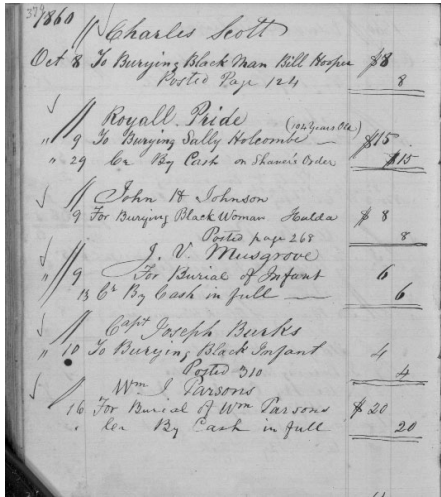 379
1860
Charles Scott
Oct 8 To Burying Black Man Bill Hooper $8
Posted Page 124 8
Royall Pride
" 9 To Burying Sally Holcombe (104 Years Old) $15
" 29 Cr By Cash on Shaver's Order $15
John H Johnson
9 For Burying Black Woman Hulda $ 8
Posted page 268 8
J. V. Musgrove
" 9 For Burial of Infant 6
" 13 Cr By Cash in full 6
Capt Joseph Burks
" 10 To Burying Black Infant 4
Posted 310 4
Wm J Parsons
16 For Burial of Wm Parsons $ 20
" Cr By Cash in full 20